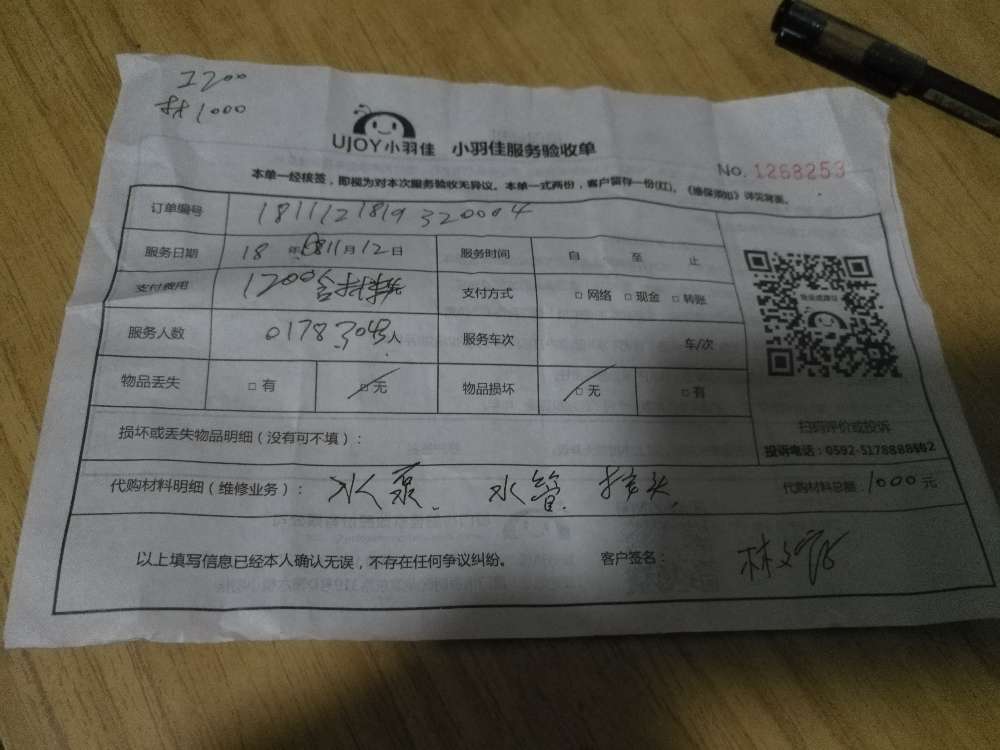 工200
材1000
UJOY小羽佳 小羽佳服务验收单
No. 1268253
本单一经核签，即视为对本次服务验收无异议。本单一式两份，客户留存一份(红)。《维保须知》详见背面。
订单编号 1811121819320004
服务日期 18年11月12日 服务时间 自 至 止
支付费用 1200含材料 支付方式 □网络 □现金 □转账
服务人数 01783043人 服务车次 车/次
物品丢失 □有 □无 物品损坏 □无 □有
扫码评价或投诉
投诉电话：0592-5178888
损坏或丢失物品明细（没有可不填）：
代购材料明细（维修业务）： 水泵、水管、接头 代购材料总额：1000元
以上填写信息已经本人确认无误，不存在任何争议纠纷。 客户签名：林文